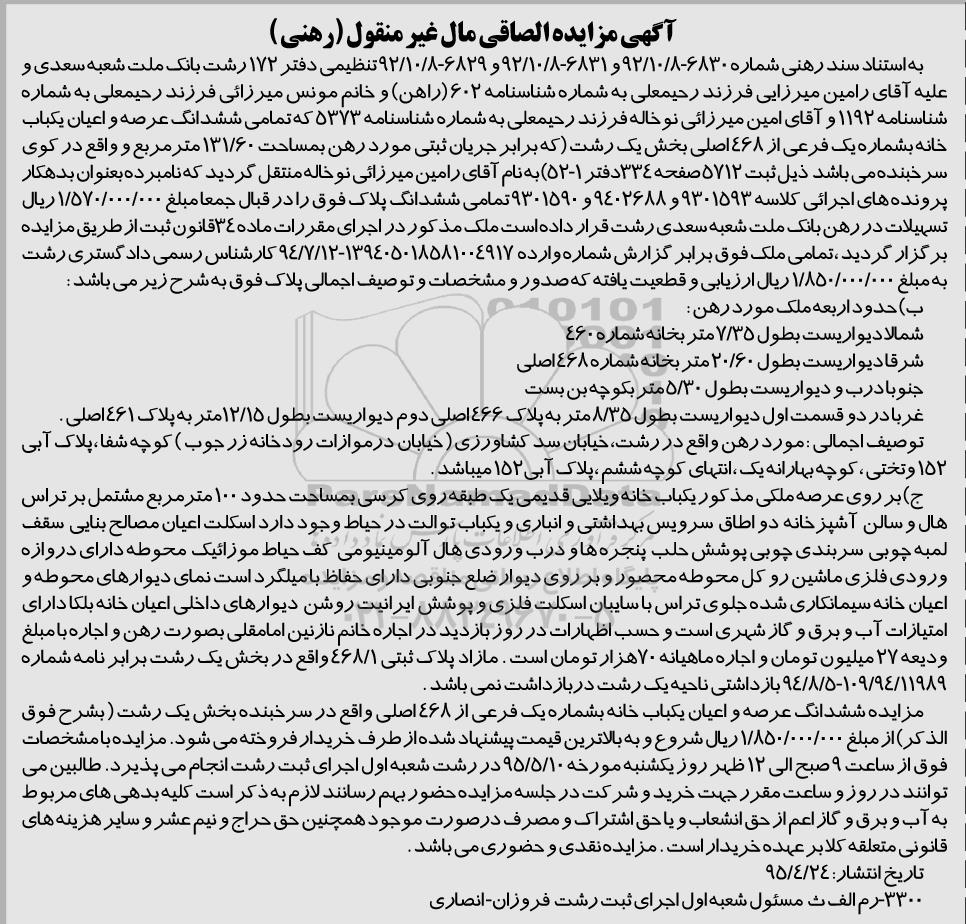 آگهی مزایده الصاقی مال غیر منقول (رهنی)
به استناد سند رهنی شماره ۶۸۳۰-۹۲/۱۰/۸ و ۶۸۳۱-۹۲/۱۰/۸ و ۶۸۲۹-۹۲/۱۰/۸ تنظیمی دفتر ۱۷۲ رشت بانک ملت شعبه سعدی و
علیه آقای رامین میرزایی فرزند رحیمعلی به شماره شناسنامه ۶۰۲ (راهن) و خانم مونس میرزائی فرزند رحیمعلی به شماره
شناسنامه ۱۱۹۲ و آقای امین میرزائی نوخاله فرزند رحیمعلی به شماره شناسنامه ۵۳۷۳ که تمامی ششدانگ عرصه و اعیان یکباب
خانه بشماره یک فرعی از ۴۶۸ اصلی بخش یک رشت (که برابر جریان ثبتی مورد رهن بمساحت ۱۳۱/۶۰ متر مربع و واقع در کوی
سرخبنده می باشد ذیل ثبت ۵۷۱۲ صفحه ۳۳۴ دفتر ۱-۵۲) به نام آقای رامین میرزائی نوخاله منتقل گردید که نامبرده بعنوان بدهکار
پرونده های اجرائی کلاسه ۹۳۰۱۵۹۳ و ۹۴۰۲۶۸۸ و ۹۳۰۱۵۹۰ تمامی ششدانگ پلاک فوق را در قبال جمعا مبلغ ۱/۵۷۰/۰۰۰/۰۰۰ ریال
تسهیلات در رهن بانک ملت شعبه سعدی رشت قرار داده است ملک مذکور در اجرای مقررات ماده ۳۴ قانون ثبت از طریق مزایده
برگزار گردید ، تمامی ملک فوق برابر گزارش شماره وارده ۱۳۹۴۰۵۰۱۸۵۸۱۰۰۴۹۱۷-۹۴/۷/۱۲ کارشناس رسمی دادگستری رشت
به مبلغ ۱/۸۵۰/۰۰۰/۰۰۰ ریال ارزیابی و قطعیت یافته که صدور و مشخصات و توصیف اجمالی پلاک فوق به شرح زیر می باشد :
ب) حدود اربعه ملک مورد رهن :
شمالا دیواریست بطول ۷/۳۵ متر بخانه شماره ۴۶۰
شرقا دیواریست بطول ۲۰/۶۰ متر بخانه شماره ۴۶۸ اصلی
جنوبا درب و دیواریست بطول ۵/۳۰ متر بکوچه بن بست
غربا در دو قسمت اول دیواریست بطول ۸/۳۵ متر به پلاک ۴۶۶ اصلی دوم دیواریست بطول ۱۲/۱۵ متر به پلاک ۴۶۱ اصلی .
توصیف اجمالی : مورد رهن واقع در رشت، خیابان سد کشاورزی (خیابان در موازات رودخانه زر جوب ) کوچه شفا، پلاک آبی
۱۵۲ و تختی ، کوچه بهارانه یک ، انتهای کوچه ششم ، پلاک آبی ۱۵۲ میباشد .
ج) بر روی عرصه ملکی مذکور یکباب خانه ویلایی قدیمی یک طبقه روی کرسی بمساحت حدود ۱۰۰ متر مربع مشتمل بر تراس
هال و سالن آشپزخانه دو اطاق سرویس بهداشتی و انباری و یکباب توالت در حیاط وجود دارد اسکلت اعیان مصالح بنایی سقف
لمبه چوبی سربندی چوبی پوشش حلب پنجره ها و درب ورودی هال آلومینیومی کف حیاط موزائیک محوطه دارای دروازه
ورودی فلزی ماشین رو کل محوطه محصور و بر روی دیوار ضلع جنوبی دارای حفاظ با میلگرد است نمای دیوارهای محوطه و
اعیان خانه سیمانکاری شده جلوی تراس با سایبان اسکلت فلزی و پوشش ایرانیت روشن دیوارهای داخلی اعیان خانه بلکا دارای
امتیازات آب و برق و گاز شهری است و حسب اظهارات در روز بازدید در اجاره خانم نازنین امامقلی بصورت رهن و اجاره با مبلغ
ودیعه ۲۷ میلیون تومان و اجاره ماهیانه ۷۰ هزار تومان است . مازاد پلاک ثبتی ۴۶۸/۱ واقع در بخش یک رشت برابر نامه شماره
۱۰۹/۹۴/۱۱۹۸۹-۹۴/۸/۵ بازداشتی ناحیه یک رشت در بازداشت نمی باشد .
مزایده ششدانگ عرصه و اعیان یکباب خانه بشماره یک فرعی از ۴۶۸ اصلی واقع در سرخبنده بخش یک رشت (بشرح فوق
الذکر) از مبلغ ۱/۸۵۰/۰۰۰/۰۰۰ ریال شروع و به بالاترین قیمت پیشنهاد شده از طرف خریدار فروخته می شود. مزایده با مشخصات
فوق از ساعت ۹ صبح الی ۱۲ ظهر روز یکشنبه مورخه ۹۵/۵/۱۰ در رشت شعبه اول اجرای ثبت رشت انجام می پذیرد. طالبین می
توانند در روز و ساعت مقرر جهت خرید و شرکت در جلسه مزایده حضور بهم رسانند لازم به ذکر است کلیه بدهی های مربوط
به آب و برق و گاز اعم از حق انشعاب و یا حق اشتراک و مصرف در صورت موجود همچنین حق حراج و نیم عشر و سایر هزینه های
قانونی متعلقه کلا بر عهده خریدار است . مزایده نقدی و حضوری می باشد .
تاریخ انتشار: ۹۵/۴/۲۴
۳۳۰۰-رم الف ث مسئول شعبه اول اجرای ثبت رشت فروزان-انصاری
ParsNamadData
۰۲۱-۸۸۳۴۹۶۷۰-۵